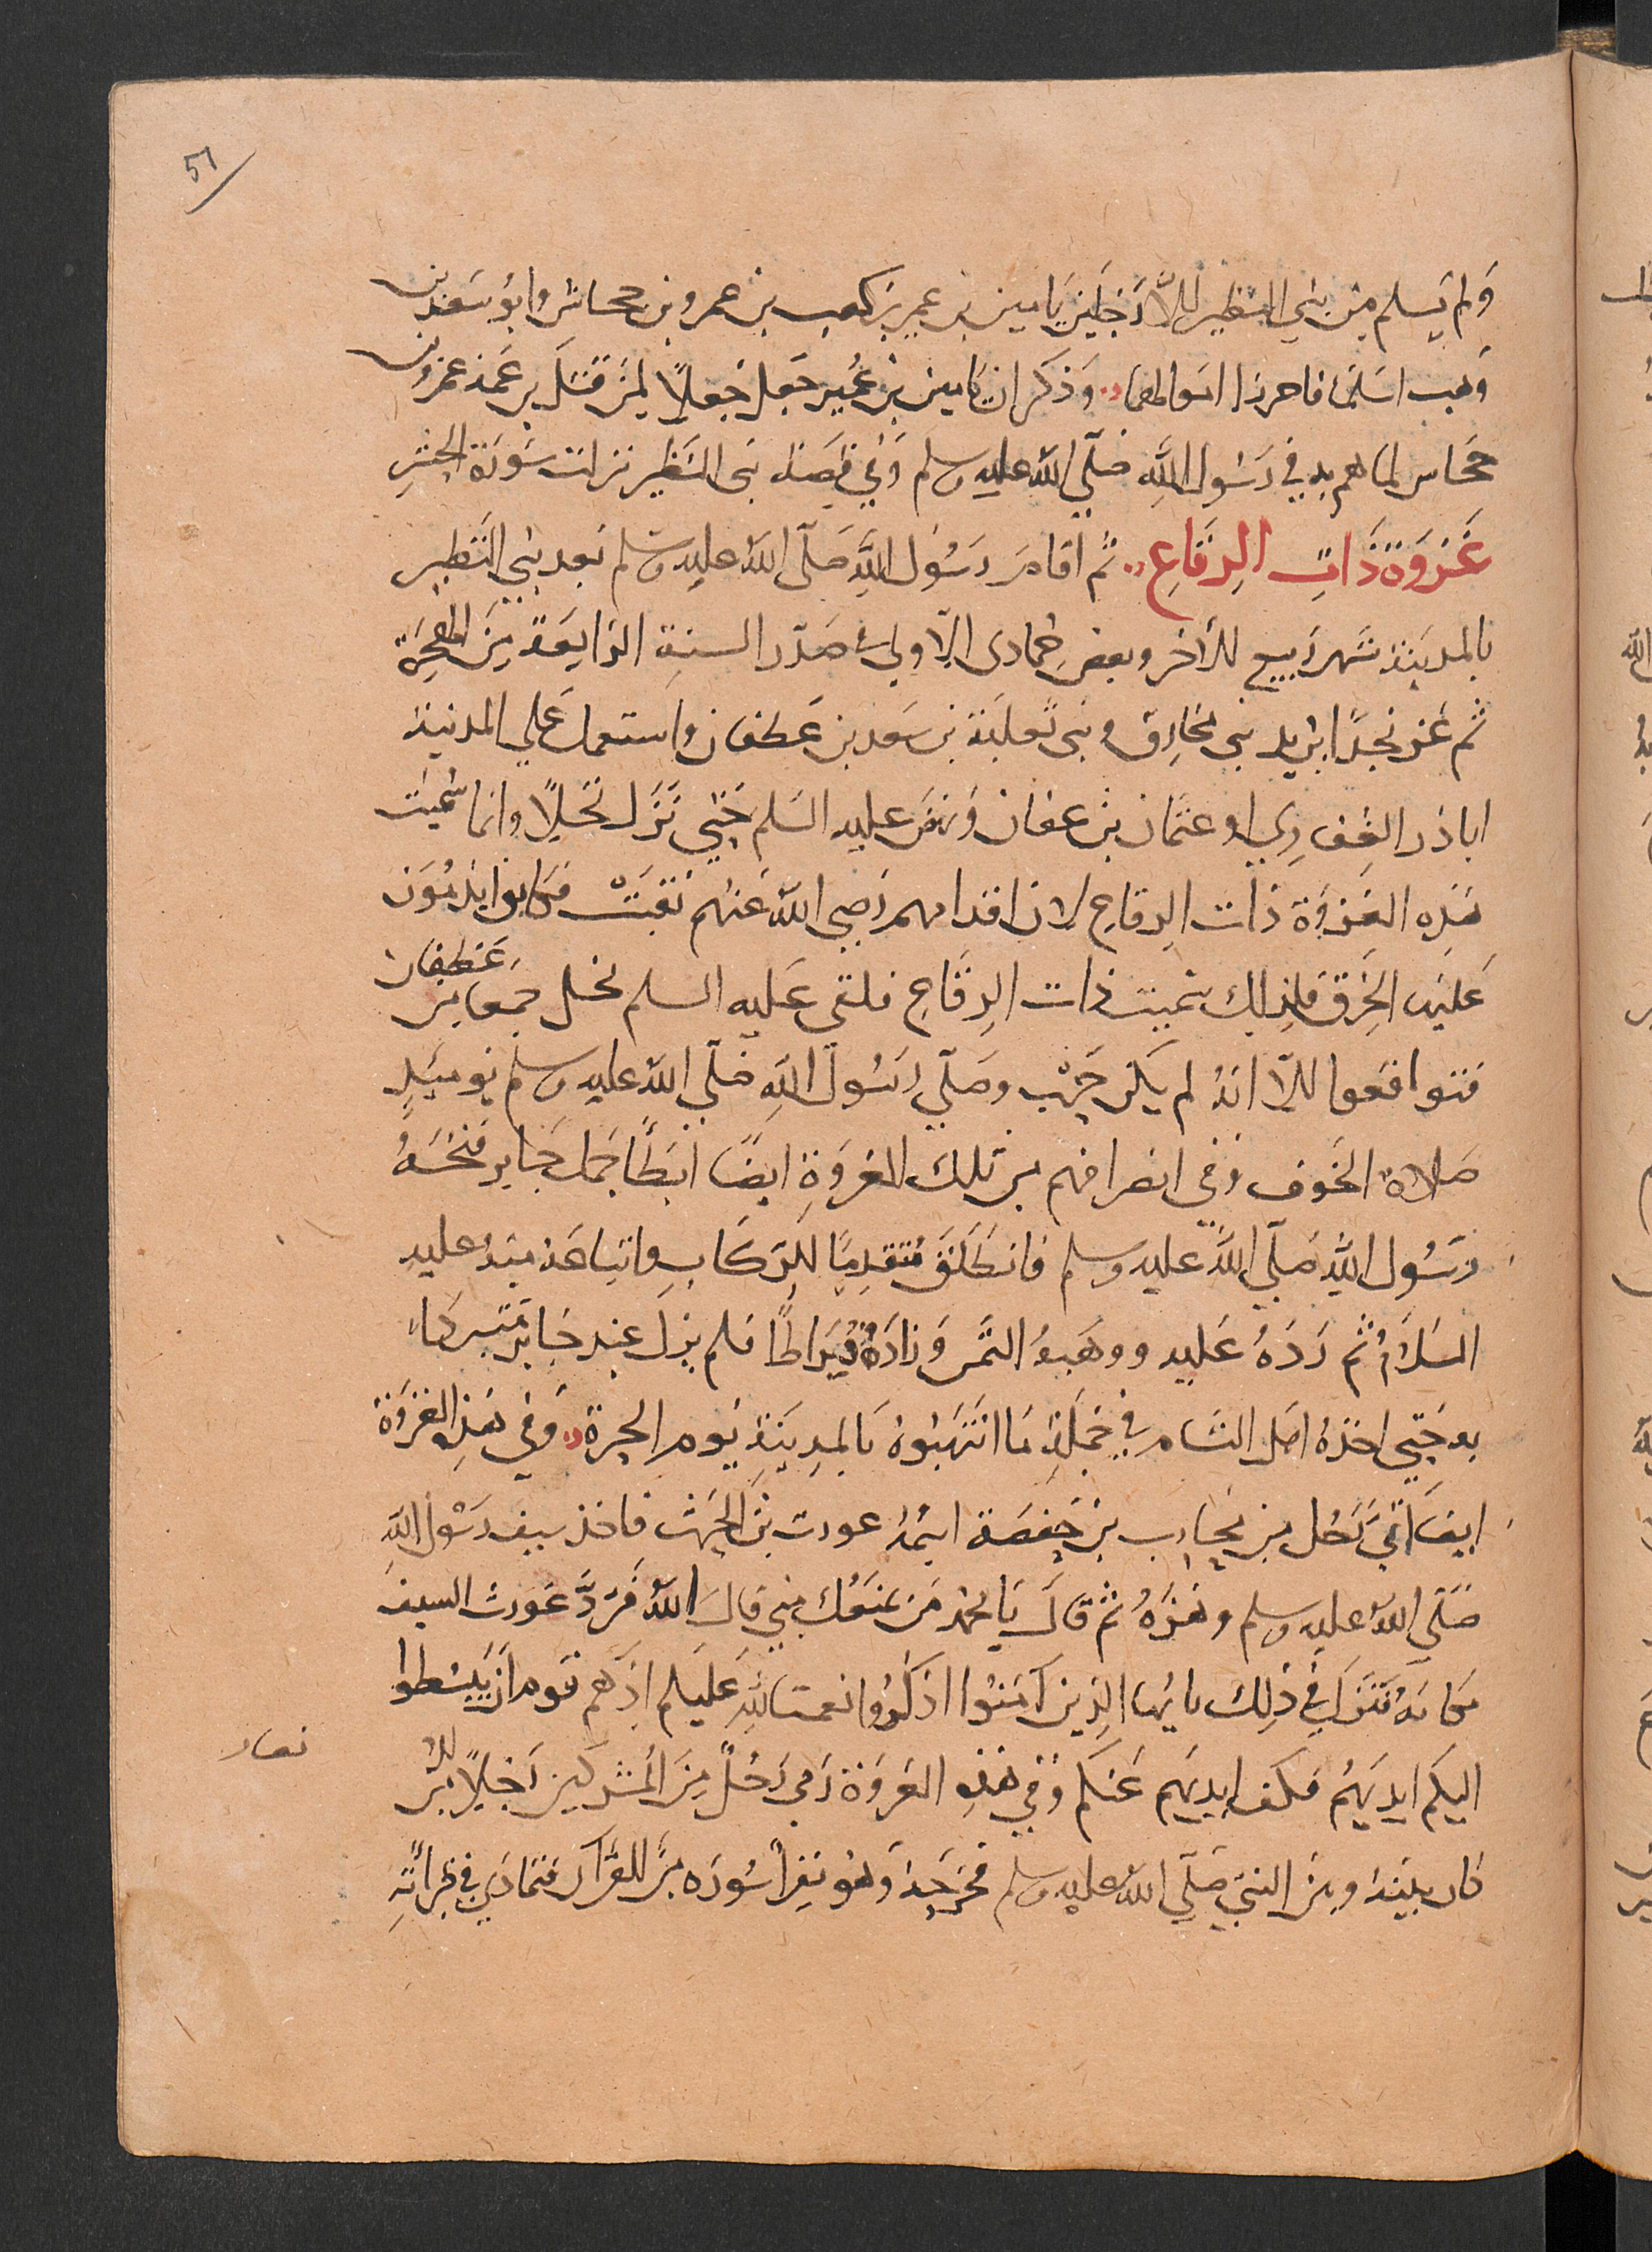 51
وَلم يَسلم مِن بني النظير إلاَّ رَجلين يَامين بن عمير بن كعب بن عمرو بن جحاش وابو سَعد بن
وَهب اسلمَا فاحرزا اموالهما وَذكر ان يَامين بن عُمير جَعل جُعلاً لمن قتل بن عَمه عمرو بن
جحَاس لما هم به في رَسُول اللهِ صَلّي الله عليه وسلم وَفي قصَة بنى النَظير نزلت سَورَة الحشرِ
غَزوَة ذَاتِ الرِقَاعِ ثم اقامَ رَسُول اللهِ صَلّى الله عليه وسَلم بَعد بني النَظير
بالمدينة شَهر رَبيع الآخر وبعض جُمادى الآولى صَدر السنةِ الرَابعَة مِنَ الهجرَة
ثم غز نجدًا يُريد بني مُحارِق وبنى ثعلبَة بن سَعد بن غطفان واستعمل عَلي المدينة
اباذر الغِف ري او عثمَان بن عفان وَنهضَ عليه السَلم حَتي نَزَل نَخلاً وانما سُميت
هَذِه الغَزوَة ذات الرِقاع لان اقدامهم رَضي الله عَنهم نَقبَتْ فكانوا يلفوُن
عَليهَا الخِرَق فلِذلك سُميت ذات الرِقَاع فلقى عَليه السلم نخل جمعا من غَطفان
فتواقعوا إلاّ انهُ لم يَكن حَرب وصَلّي رَسُول اللهِ صَلّي الله عليه وسلم يَومئِذٍ
صَلاة الخَوف وَفي انصرافهم من تلك الغزوَةِ ايضًا ابطَأ جَمل جَابر فَنخسَهُ
رسَُول اللهِ صَلّي الله عليه وسلم فانطَلقَ مُتقدِمًا للرِكَابِ وابتاعَه مِنهُ عليه
السَلامُ ثم رَدَهُ عَليه ووهَبهُ الثَمن وَزادَهُ قيَراطًا فلم يزل عِند جَابر مُتبركا
به حَتي اخذهُ اهَل الشام في جُملَةِ مَا انتَهبُوهُ بالمدِينَةِ يَوم الحرة وَفي هَذِه الغزوَة
ايضَا اتي رَجل من مُحارب بن حفصَة اسمهُ غورث بن الحرث فاخذ سيف رَسُول اللهِ
صَلّي اللهُ عليه وسلم وهَزهُ ثم قالَ يَا محمد مَن يَمنعَك مِني قالَ اللهُ فَردَّ غَورث السيف
مكانهُ فنَزل في ذلِك يا ايُها الذِين آمَنُوا اذكرُوا نعمت اللهِ عَليكم اذ هَم قوم ان يَبسُطوا
اليكم ايديَهُم فكف ايديَهم عَنكم وَفي هَذِه الغزوَة رَمي رَجُل مِنَ المُشركين رَجلاً مِنَ الا
نصار
كان بينه وبين النبي صَلّي الله عليه وسلم فجَرحَهُ وَهُو يَقرأ سُورَه مِنَ القرآن فتمادَي في قرأتِهِ